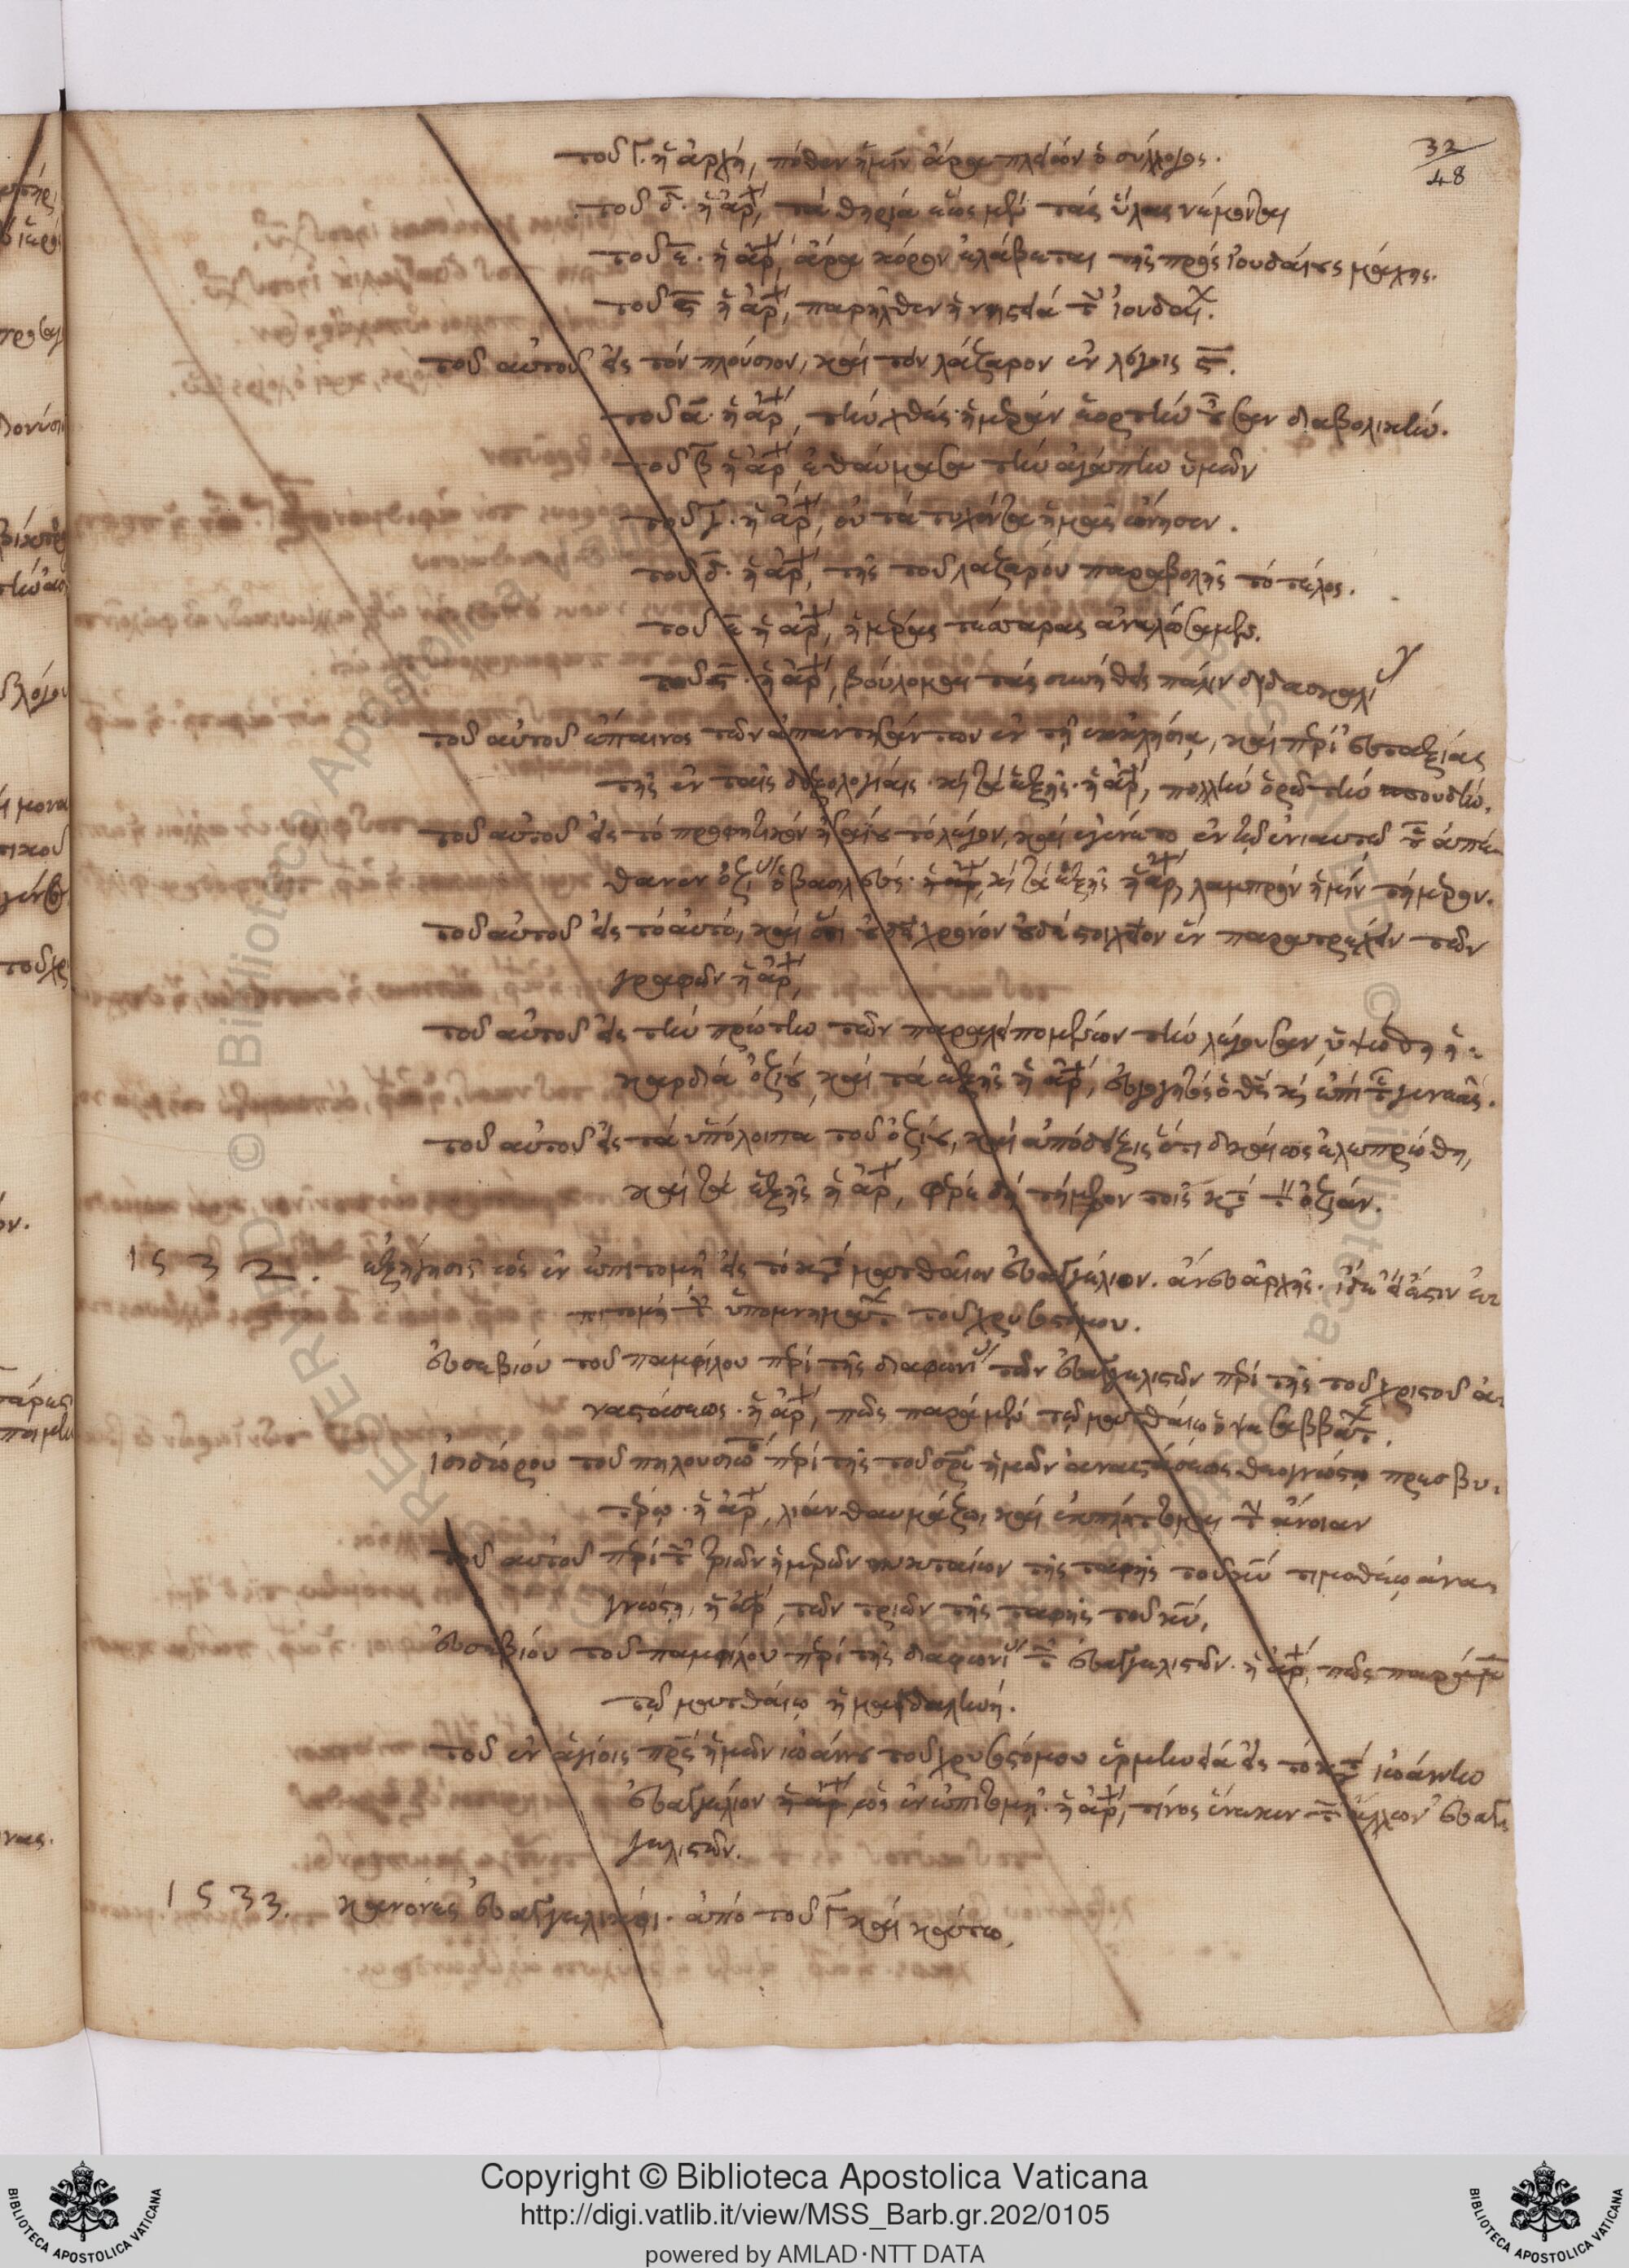 32
48
τοῦ γ. ἡ ἀρχὴ, πόθεν ἡμῖν ἄρα πλείων ὁ σύλλογος.
τοῦ δ. ἡ ἀρχ, τὰ θηρία ἕως μὲν τὰς ὕλας νέμονται
τοῦ ε. ἡ ἀρχ, ἄρα κόρον ἐλάβεται τῆς πρὸς ἰουδαίους μάχης.
τοῦ ϛ ἡ ἀρχ, παρῆλθεν ἡ νηστεία τ ἰουδαϊ.
τοῦ αὐτοῦ εἰς τὸν πλούσιον, καὶ τὸν λάζαρον ἐν λόγοις ϛ.
τοῦ α. ἡ ἀρχ, τὴν χθὲς ἡμέραν ἑορτὴν οὖσαν διαβολικὴν.
τοῦ β ἡ ἀρχ, ἐθαύμασα τὴν ἀγάπην ὑμῶν
τοῦ γ. ἡ ἀρχ, οὐ τὰ τυχόντα ἡμᾶς ὤνησεν.
τοῦ δ. ἡ ἀρχ, τῆς τοῦ λαζάρου παραβολῆς τὸ τέλος.
τοῦ ε ἡ ἀρχ, ἡμέρας τέσσαρας ἀναλώσαμεν.
τοῦ ϛ. ἡ ἀρχ, βούλομαι τὰς συνήθεις πάλιν διδασκαλι
τοῦ αὐτοῦ ἔπαινος τῶν ἀπαντησάντων ἐν τῇ ἐκκλησίᾳ, καὶ περὶ εὐταξίας
τῆς ἐν ταῖς δοξολογίαις. καὶ τὰ ἑξῆς. ἡ ἀρχ, πολλὴν ὁρῶ τὴν σπουδὴν.
τοῦ αὐτοῦ εἰς τὸ προφητικὸν ἡσαΐου τὸ λέγον, καὶ ἐγένετο ἐν τῷ ἐνιαυτῷ οὗ ἀπέ
θανεν ὀζίας ὁ βασιλεὺς. ἡ ἀρχ, καὶ τὰ ἑξῆς ἡ ἀρχ, λαμπρὸν ἡμῖν τήμερον.
τοῦ αὐτοῦ εἰς τὸ αὐτὸ, καὶ ὅτι οὐδὲ χρόνον οὐδὲ στοιχεῖον ἓν παρατρέχειν τῶν
γραφῶν ἡ ἀρχ,
τοῦ αὐτοῦ εἰς τὴν πρώτην τῶν παραλειπομένων τὴν λέγουσαν, ὑψώθη ἡ
καρδία ὀζίου, καὶ τὰ ἑξῆς ἡ ἀρχ, εὐλογητὸς ὁ θς καὶ ἐπὶ τ γενεᾶς.
τοῦ αὐτοῦ εἰς τὰ ὑπόλοιπα τοῦ ὀζίου, καὶ ἀπόδειξις ὅτι δικαίως ἐλεπρώθη,
καὶ τὰ ἑξῆς ἡ ἀρχ, φέρε δὴ τήμερον τοῖς κατὰ τὸν ὀζίαν.
1532. ἐξήγησις ὡς ἐν ἐπιτομῇ εἰς τὸ κατὰ ματθαῖον εὐαγγέλιον. ἄνευ ἀρχῆς.
πιτομὴ τ ὑπομνημάτ τοῦ χρυσοστόμου.
εὐσεβίου τοῦ παμφίλου περὶ τῆς διαφωνι τῶν εὐαγγελιστῶν περὶ τῆς τοῦ χριστοῦ ἀ
ναστάσεως. ἡ ἀρχ, πῶς παρὰ μὲν τῷ ματθαίῳ ὀψὲ σαββάτ.
ἰσιδώρου τοῦ πηλουσιώτου περὶ τῆς τοῦ σρς ἡμῶν ἀναστάσεως θεογνώστῳ πρεσβυ
τέρῳ. ἡ ἀρχ, λίαν θαυμάζω, καὶ ἐκπλήττομαι τ ἄνοιαν
τοῦ αὐτοῦ περὶ τ τριῶν ἡμερῶν νυκταίων τῆς ταφῆς τοῦ κυ τιμοθέῳ ἀνα
γνώστῃ, ἡ ἀρχ, τῶν τριῶν τῆς ταφῆς τοῦ κυ,
εὐσεβίου τοῦ παμφίλου περὶ τῆς διαφωνι τ εὐαγγελιστῶν. ἡ ἀρχ, πῶς παρὰ μὲν
τῷ ματθαίῳ ἡ μαγδαληνή.
τοῦ ἐν ἁγίοις πρς ἡμῶν ἰωάννου τοῦ χρυσοστόμου ἑρμηνεία εἰς τὸ κατὰ ἰωάννην
εὐαγγέλιον ἡ ἀρχ ὡς ἐν ἐπιτομῇ. ἡ ἀρχ, τίνος ἕνεκεν τ ἄλλων εὐαγ
γελιστῶν.
1533. κανόνες εὐαγγελικοί. ἀπὸ τοῦ γ καὶ κάτω,
Copyright © Biblioteca Apostolica Vaticana
http://digi.vatlib.it/view/MSS_Barb.gr.202/0105
powered by AMLAD·NTT DATA
BIBLIOTECA APOSTOLICA VATICANA
BIBLIOTECA APOSTOLICA VATICANA